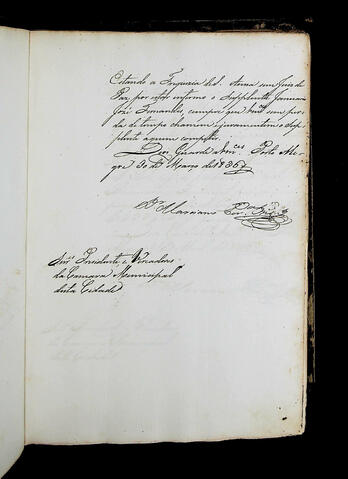 Estando a Freguezia de S. Anna sem Juiz de
Paz, por isso informe o Supplente Januario
José Fernandes, cumpre que sem per
da de tempo chamem e juramentem o Sup
plente a quem competir.
Deos Guarde a Vm.ces Porto Ale
gre 30 de Março de 1836
Snr.es Presidente e Vereadores
da Camara Municipal
desta Cidade